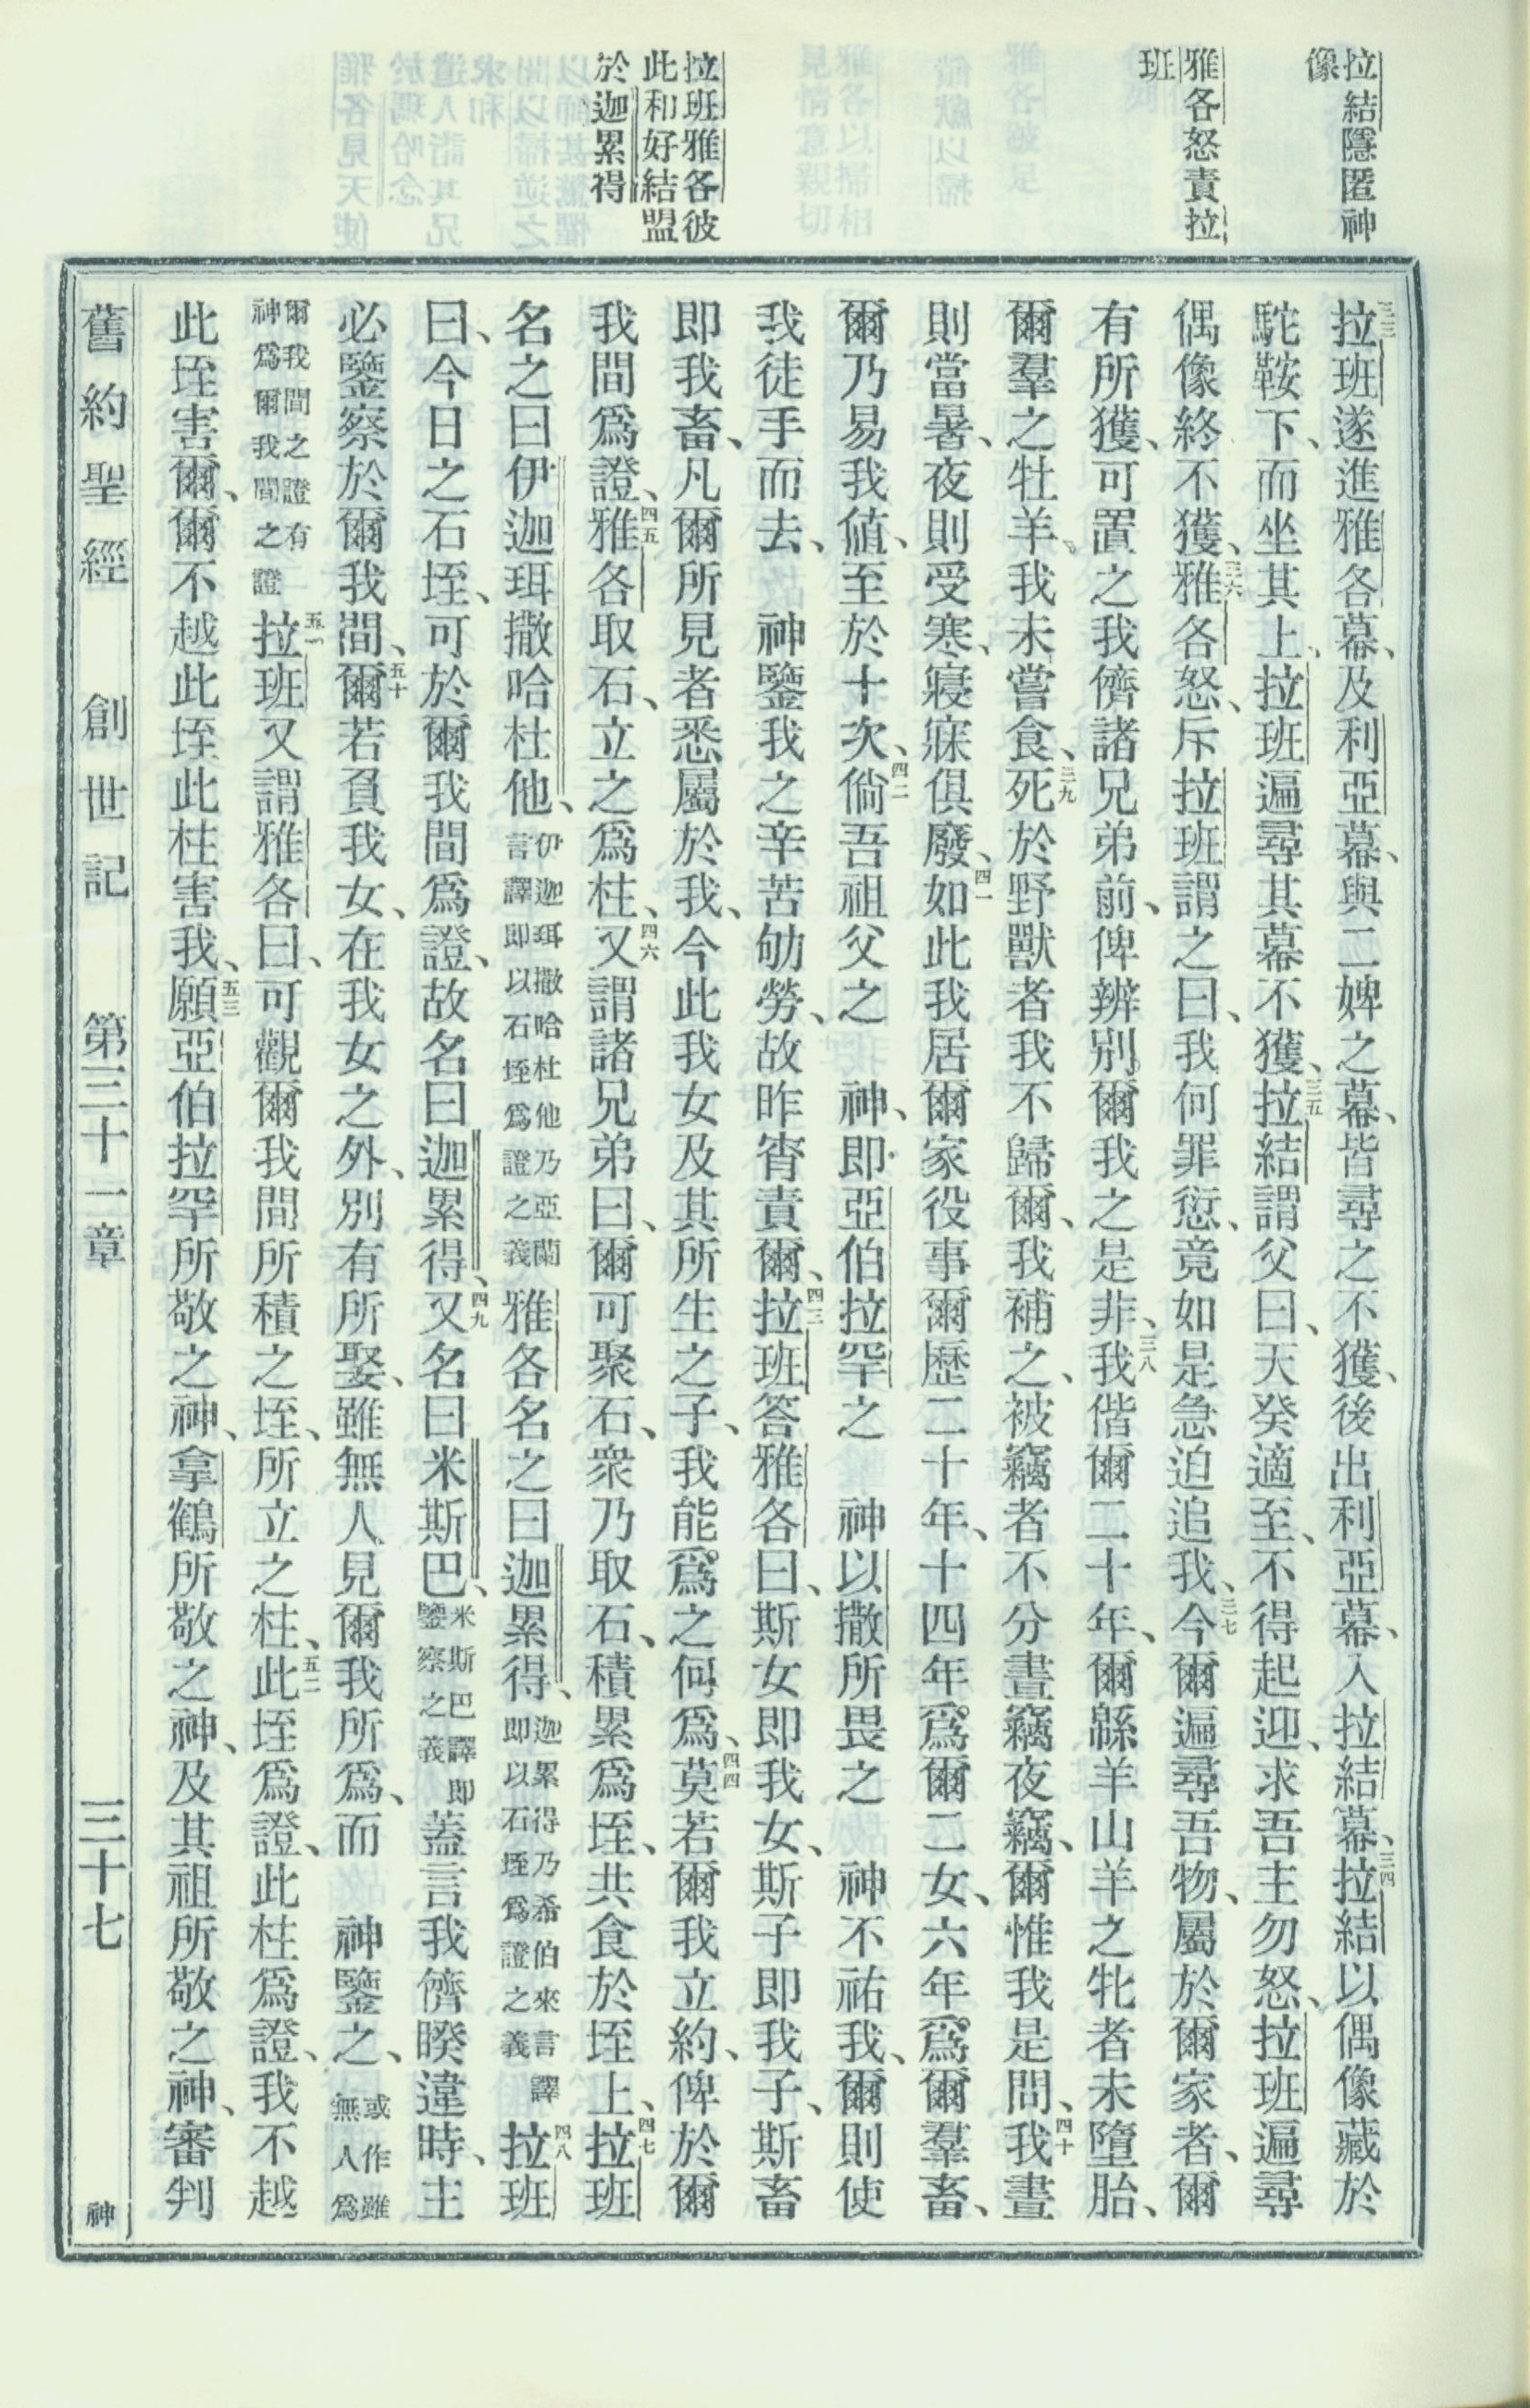 拉結隱匿神
像
雅各怒責拉
班
拉班雅各彼
此和好結盟
於迦累得
三三拉班遂進雅各幕、及利亞幕、與二婢之幕、皆尋之不獲、後出利亞幕、入拉結幕、三四拉結以偶像藏於
駝鞍下、而坐其上、拉班遍尋其幕不獲、三五拉結謂父曰、天癸適至、不得起迎、求吾主勿怒、拉班遍尋
偶像終不獲、三六雅各怒、斥拉班謂之曰、我何罪愆、竟如是急迫追我、三七今爾遍尋吾物、屬於爾家者、爾
有所獲、可置之我儕諸兄弟前、俾辨別爾我之是非、三八我偕爾二十年、爾綿羊山羊之牝者未墮胎、
爾羣之牡羊、我未嘗食、三九死於野獸者我不歸爾、我補之、被竊者不分晝竊夜竊、爾惟我是問、四十我晝
則當暑、夜則受寒、寢寐俱廢、四一如此我居爾家役事爾歷二十年、十四年爲爾二女、六年爲爾羣畜、
爾乃易我値、至於十次、四二倘吾祖父之 神、即亞伯拉罕之 神以撒所畏之 神不祐我、爾則使
我徒手而去、 神鑒我之辛苦劬勞、故昨宵責爾、四三拉班答雅各曰、斯女即我女、斯子即我子、斯畜
即我畜、凡爾所見者悉屬於我、今此我女及其所生之子、我能爲之何爲、四四莫若爾我立約、俾於爾
我間爲證、四五雅各取石、立之爲柱、四六又謂諸兄弟曰、爾可聚石、衆乃取石、積累爲垤、共食於垤上、四七拉班
名之曰伊迦珥撒哈杜他、伊迦珥撒哈杜他乃亞蘭言譯即以石垤爲證之義雅各名之曰迦累得、迦累得乃希伯來言譯即以石垤爲證之義四八拉班
曰、今日之石垤、可於爾我間爲證、故名曰迦累得、四九又名曰米斯巴、米斯巴譯即鑒察之義蓋言我儕睽違時、主
必鑒察於爾我間、五十爾若負我女、在我女之外、別有所娶、雖無人見爾我所爲、而 神鑒之、或作雖無人爲
爾我間之證有神爲爾我間之證五一拉班又謂雅各曰、可觀爾我間所積之垤、所立之柱、五二此垤爲證、此柱爲證、我不越
此垤害爾、爾不越此垤此柱害我、五三願亞伯拉罕所敬之神、拿鶴所敬之神、及其祖所敬之神、審判
舊約聖經 創世記 第三十一章 三十七 神